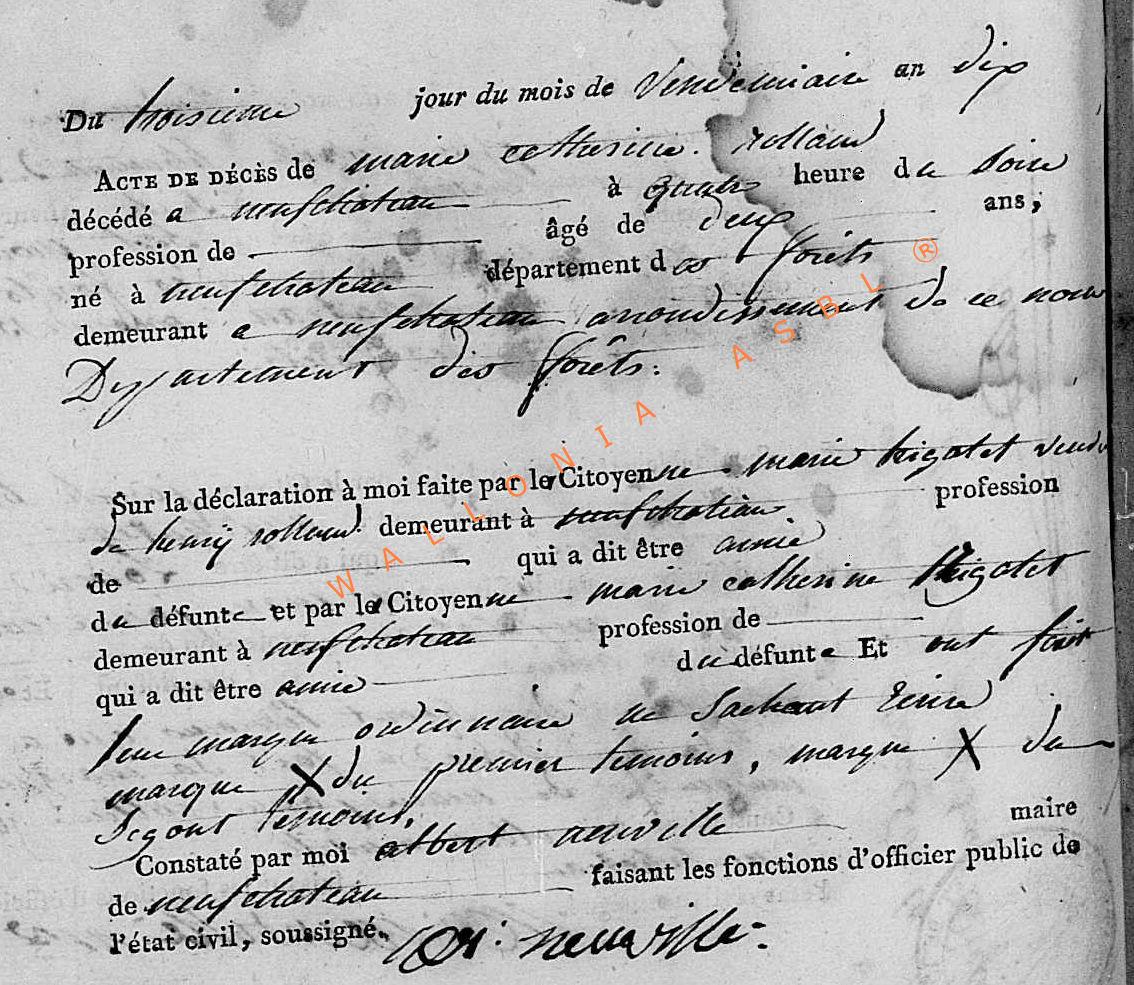 Du troisieme jour du mois de Vendemiaire an dix
ACTE DE DÉCÈS de marie catherine rolland
décédé a neufchateau à quatre heure du Soire
profession de âgé de deux ans;
né à neufchateau département des forêts
demeurant a neufchateau arrondissement de ce nom
Departement des forêts.
Sur la déclaration à moi faite par le Citoyenne marie higotet
de henry rolland demeurant à neufchateau profession
de qui a dit être amie
du défunte et par le Citoyenne marie catherine higotet
demeurant à neufchateau profession de
qui a dit être amie du défunte Et ont fait
leur marque ordinnaire ne Sachant Ecrire
marque X du premier temoins, marque X du
Segont temoins.
Constaté par moi albert neuville maire
de neufchateau faisant les fonctions d'officier public de
l'état civil, soussigné.
neuville
WALLONIA ASBL ®